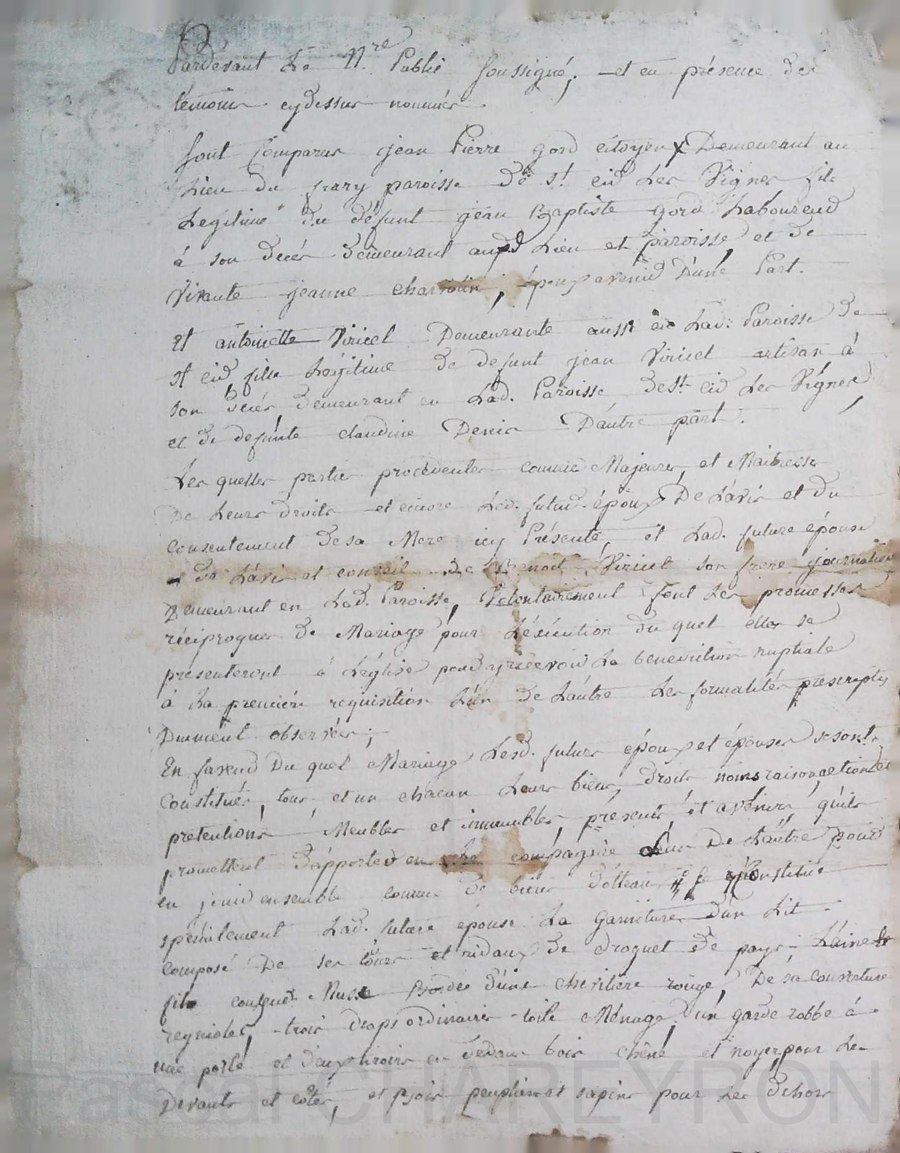 Pardevant Le Nre Public soussigné, et en présence des
témoins cydessus nommés
sont Comparus jean Pierre gord citoyen Demeurant au
Lieu du frary paroisse de st. eid Les Vignes fils
Legitime du défunt jean Baptiste gord Laboureur
à son décès demeurant aud Lieu et paroisse et de
Vivante jeanne, époux avenir D'une Part.
Et antoinette Viricel Demeurante aussi en Lad. Paroisse de
st eid fille Légitime de defunt jean Viricel artisan à
son décès demeurant en Lad. Paroisse de st eid Les Vignes
et de defunte claudine Denis D'autre part.
Les quelles parties procédentes comme Majeures et Maitresses
De Leurs droits et encore Led. futur époux De L'avis et du
consentement de sa Mere icy Présente, et Lad. future épouse
de L'avis et conseil de Benoit Viricel son frere journalier
Demeurant en Lad. Paroisse, Volontairement font Les promesses
réciproques de Mariage pour L'éxécution du quel elles se
présenteront à L'église pour y recevoir La benediction nuptiale
à La premiere requisition L'un de L'autre Les formalités prescriptes
Dument observées;
En faveur Du quel Mariage Lesd. futurs époux et épouses se sont
Constitués, tous et un chacun Leurs biens, droits noms raisons actions et
pretentions Meubles et immeubles, présents et avenirs, qu'ils
promettent d'apporter en compagnie L'un De L'autre pour
en jouir ensemble comme de biens Constitue
specialement Lad. future épouse La garniture d'un Lit
composé De ses tours et ridaux de droguet de pays Laine et
fil Bordée d'une chevilière rouge, De sa couverture
trois draps ordinaires toile Ménage, un garde robbe à
une porte et deux tiroirs en dedans bois chêne et noyer pour Les
Devants et côtés, et bois peuplier et sapins pour Les dehors
Pascal CHAREYRON